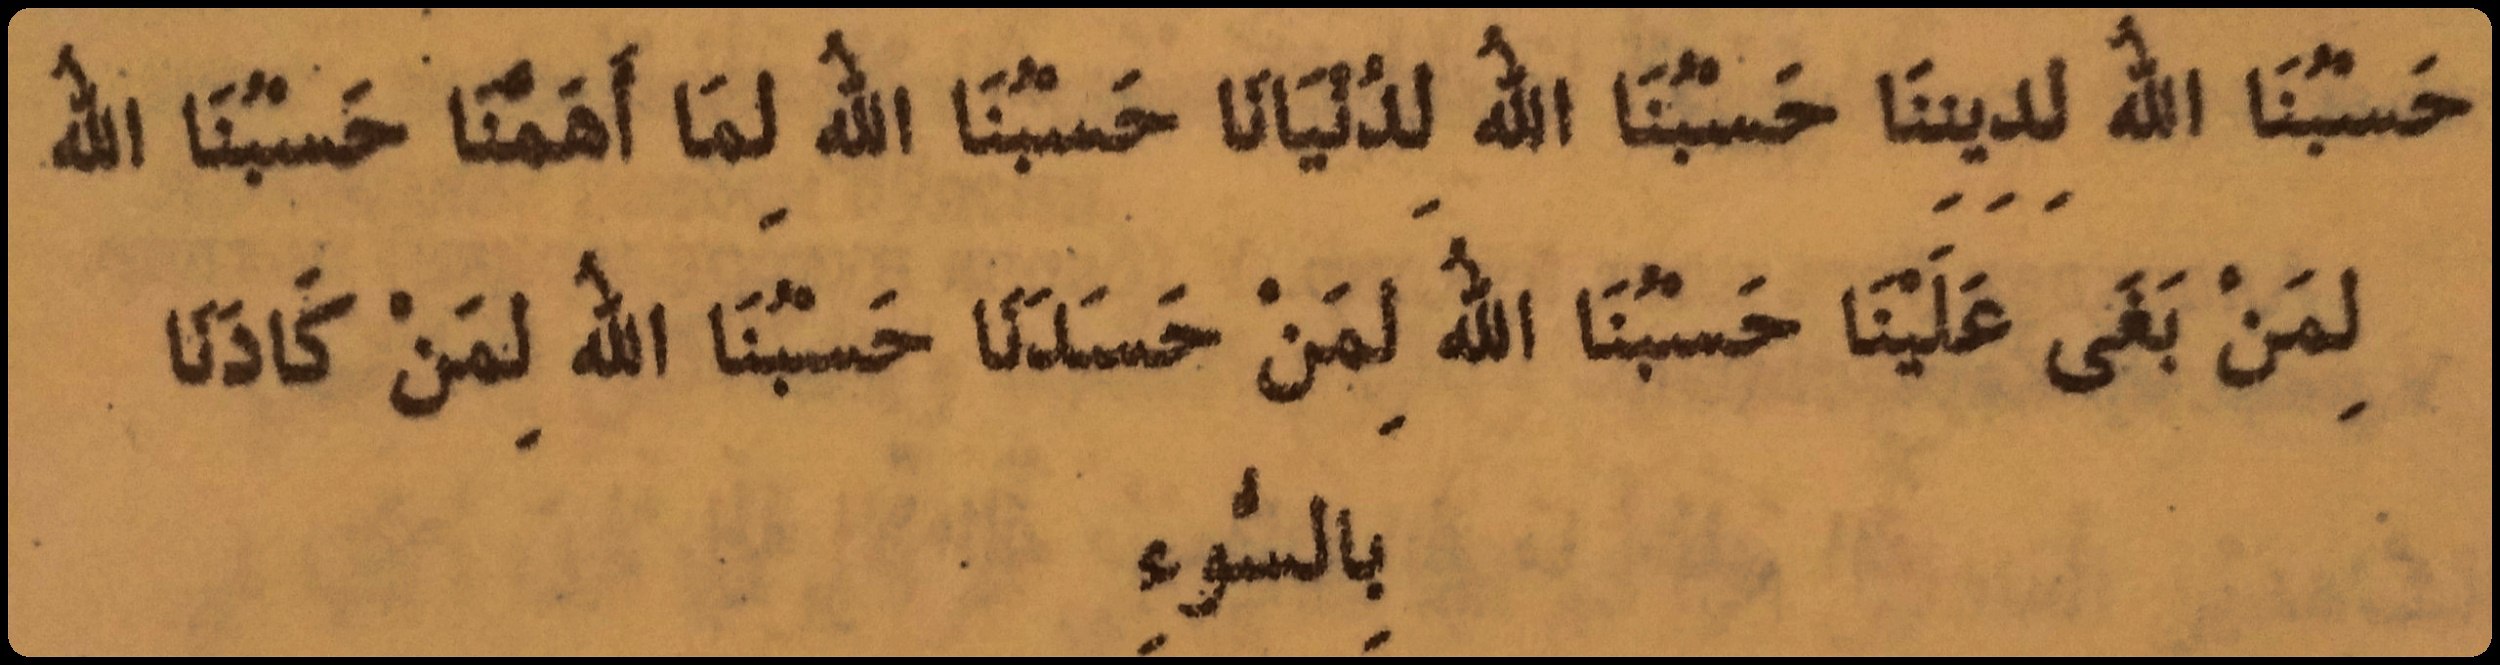 حَسْبُنَا اللهُ لِدِينِنَا حَسْبُنَا اللهُ لِدُنْيَانَا حَسْبُنَا اللهُ لِمَا أَهَمَّنَا حَسْبُنَا اللهُ
لِمَنْ بَغَى عَلَيْنَا حَسْبُنَا اللهُ لِمَنْ حَسَدَنَا حَسْبُنَا اللهُ لِمَنْ كَادَنَا
بِالسُّوءِ